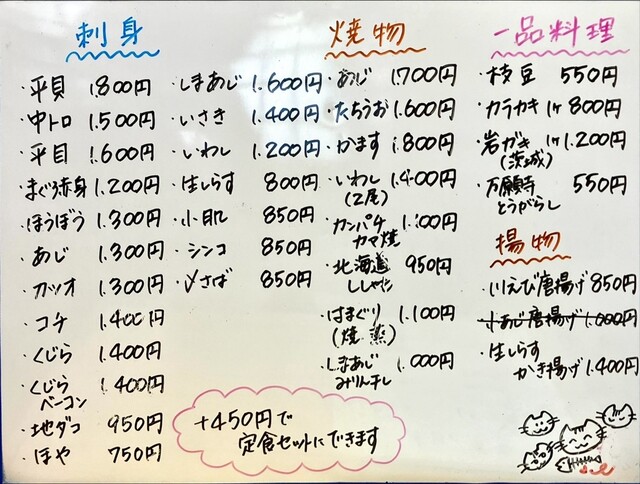 刺身
・平貝 1.800円
・中トロ 1.500円
・平目 1.600円
・まぐろ赤身 1.200円
・ほうぼう 1.300円
・あじ 1.300円
・カツオ 1.300円
・コチ 1.400円
・くじら 1.400円
・くじら
ベーコン 1.400円
・地ダコ 950円
・ほや 750円
・しまあじ 1.600円
・いさき 1.400円
・いわし 1.200円
・生しらす 800円
・小肌 850円
・シンコ 850円
・〆さば 850円
焼物
・あじ 1.700円
・たちうお 1.600円
・かます 1.800円
・いわし 1.400円
(2尾)
・カンパチ
カマ焼
・北海道 950円
ししゃも
・はまぐり 1.100円
(焼 蒸)
・しまあじ 1.000円
みりん干し
一品料理
・枝豆 550円
・カラカキ 1ヶ 800円
・岩ガキ 1ヶ 1.200円
(茨城)
・万願寺 550円
とうがらし
揚物
・川えび唐揚げ 850円
・小あじ唐揚げ 1.000円
・生しらす
かき揚げ 1.400円
+450円で
定食セットにできます